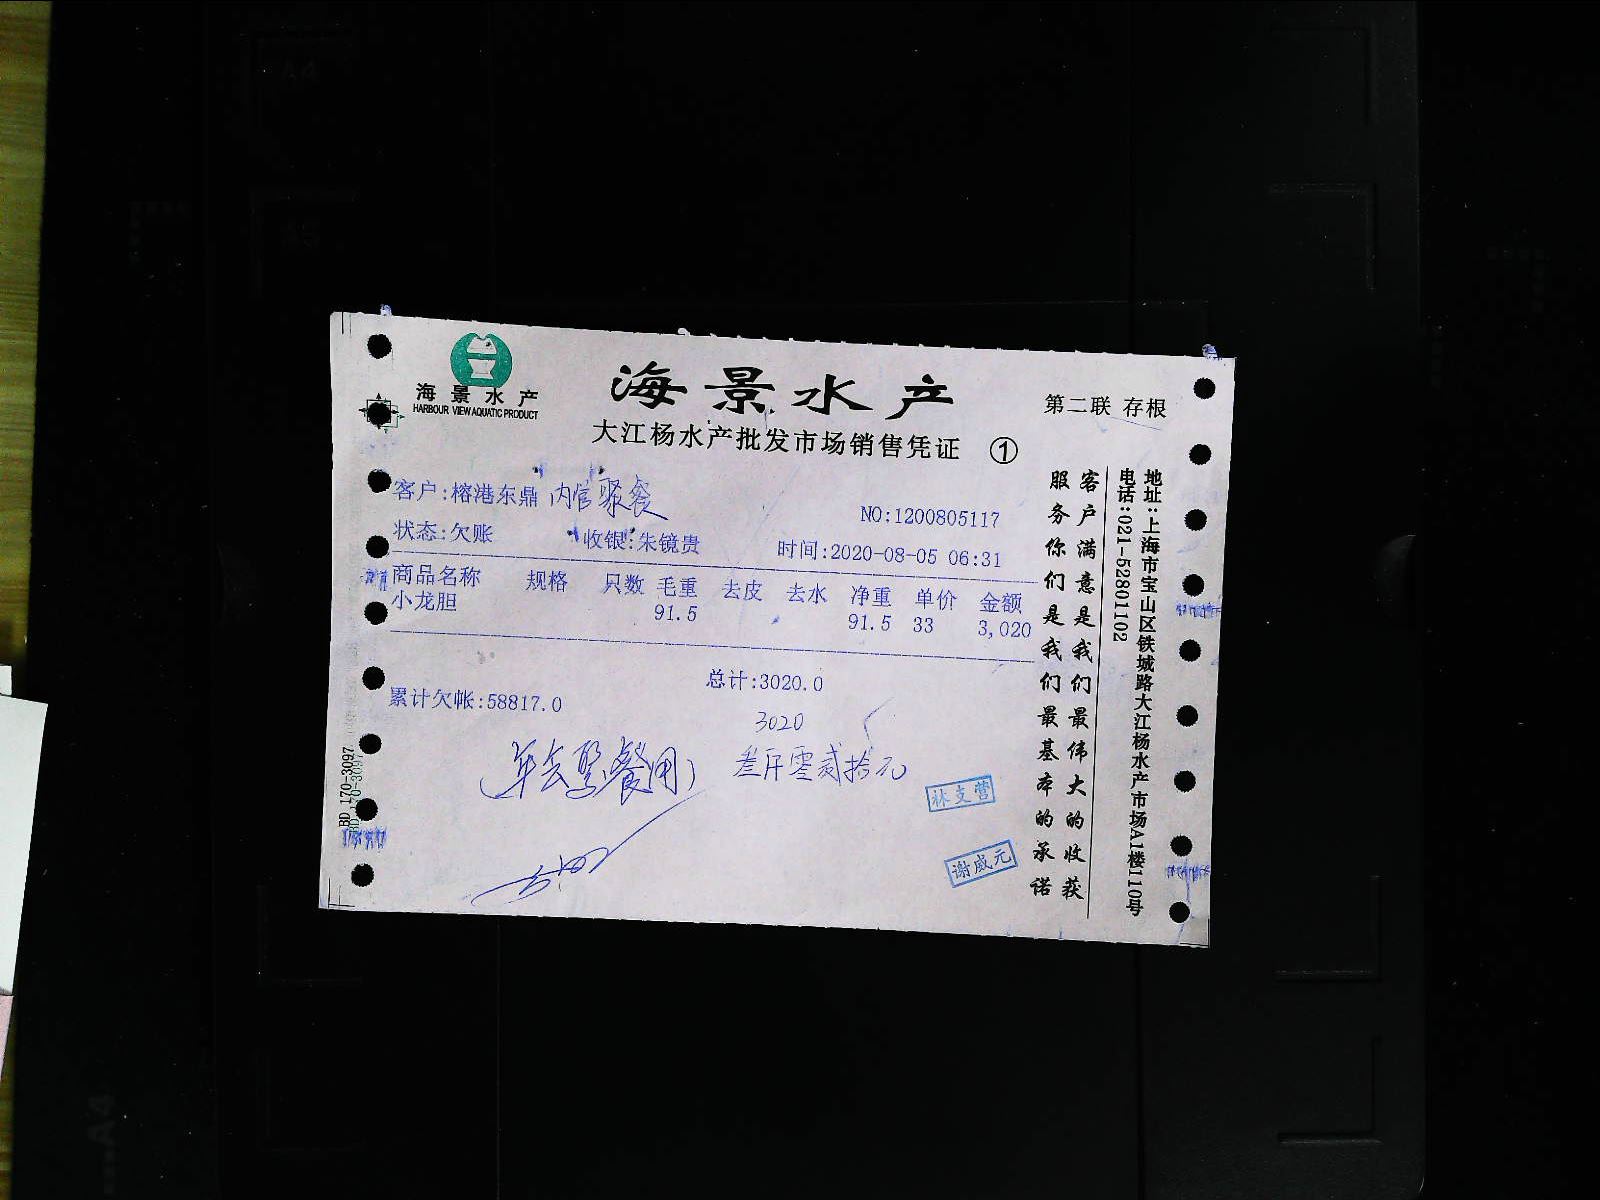 海景水产
HARBOUR VIEW AQUATIC PRODUCT
海景水产
第二联 存根
大江杨水产批发市场销售凭证 ①
客户:榕港东鼎 内官聚餐
NO:1200805117
状态:欠账 收银:朱镜贵 时间:2020-08-05 06:31
商品名称 规格 只数 毛重 去皮 去水 净重 单价 金额
小龙胆 91.5 91.5 33 3,020
总计:3020.0
累计欠帐:58817.0
3020
(年会聚餐用) 叁仟零贰拾元
林支营
谢威元
客户满意是我们最伟大的收获
服务你们是我们最基本的承诺
地址:上海市宝山区铁城路大江杨水产市场A1楼110号
电话:021-52801102
BD 170-3097
A4
A5
A4